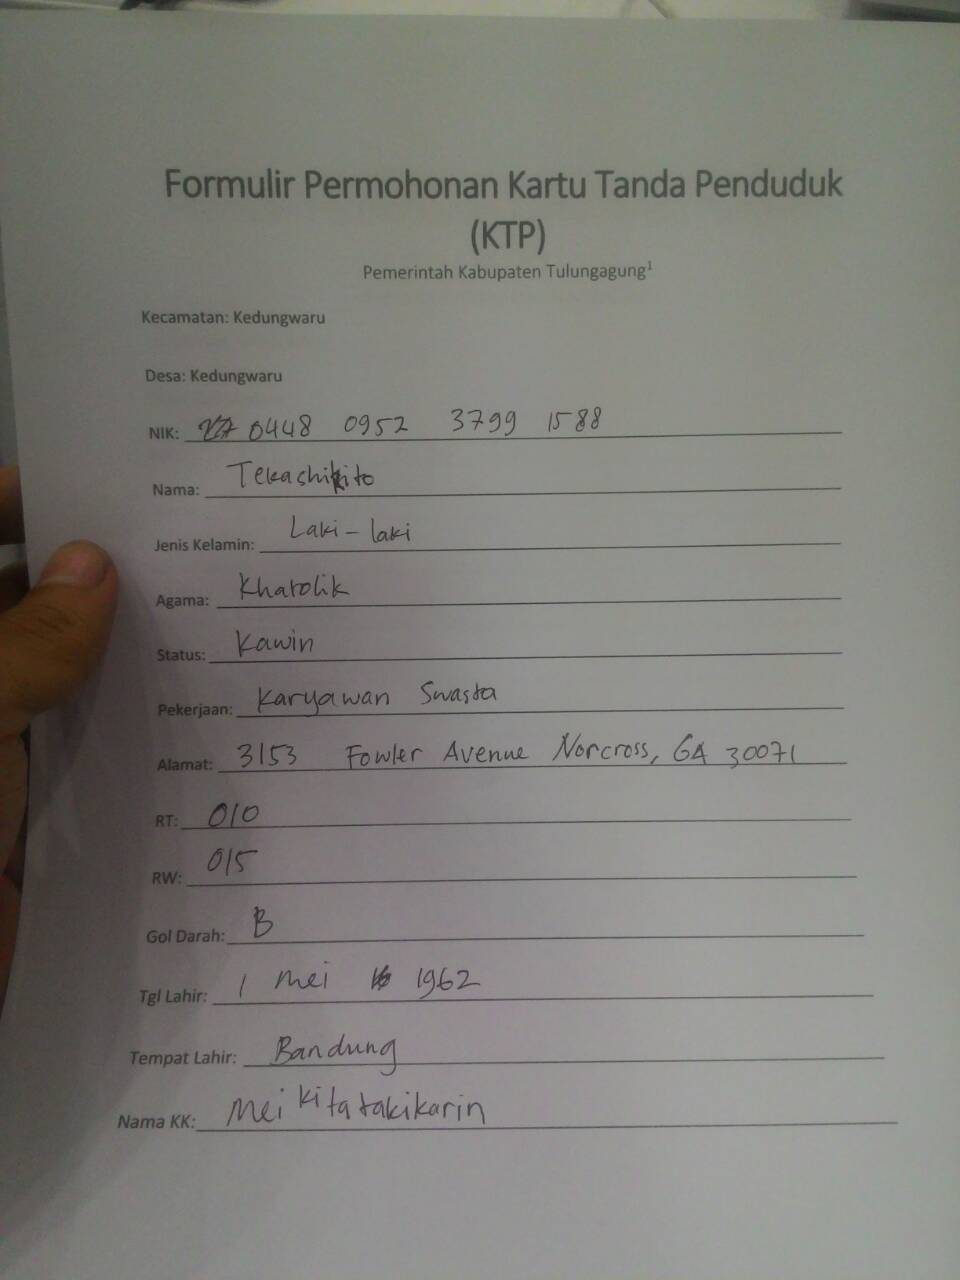 Formulir Permohonan Kartu Tanda Penduduk
(KTP)
Pemerintah Kabupaten Tulungagung¹
Kecamatan: Kedungwaru
Desa: Kedungwaru
NIK: 0448 0952 3799 1588
Nama: Tekashikito
Jenis Kelamin: Laki - laki
Agama: Kharolik
Status: Kawin
Pekerjaan: Karyawan Swasta
Alamat: 3153 Fowler Avenue Norcross, GA 30071
RT: 010
RW: 015
Gol Darah: B
Tgl Lahir: 1 Mei 1962
Tempat Lahir: Bandung
Nama KK: Mei kitatakikarin